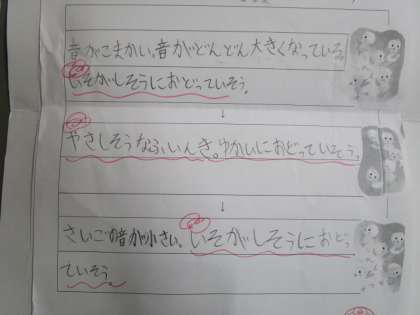 音がこまかい。音がどんどん大きくなっている。
いそがしそうにおどっていそう。
↓
やさしそうなふいんき。ゆかいにおどっていそう。
↓
さいごの音が小さい。いそがしそうにおどっ
ていそう。